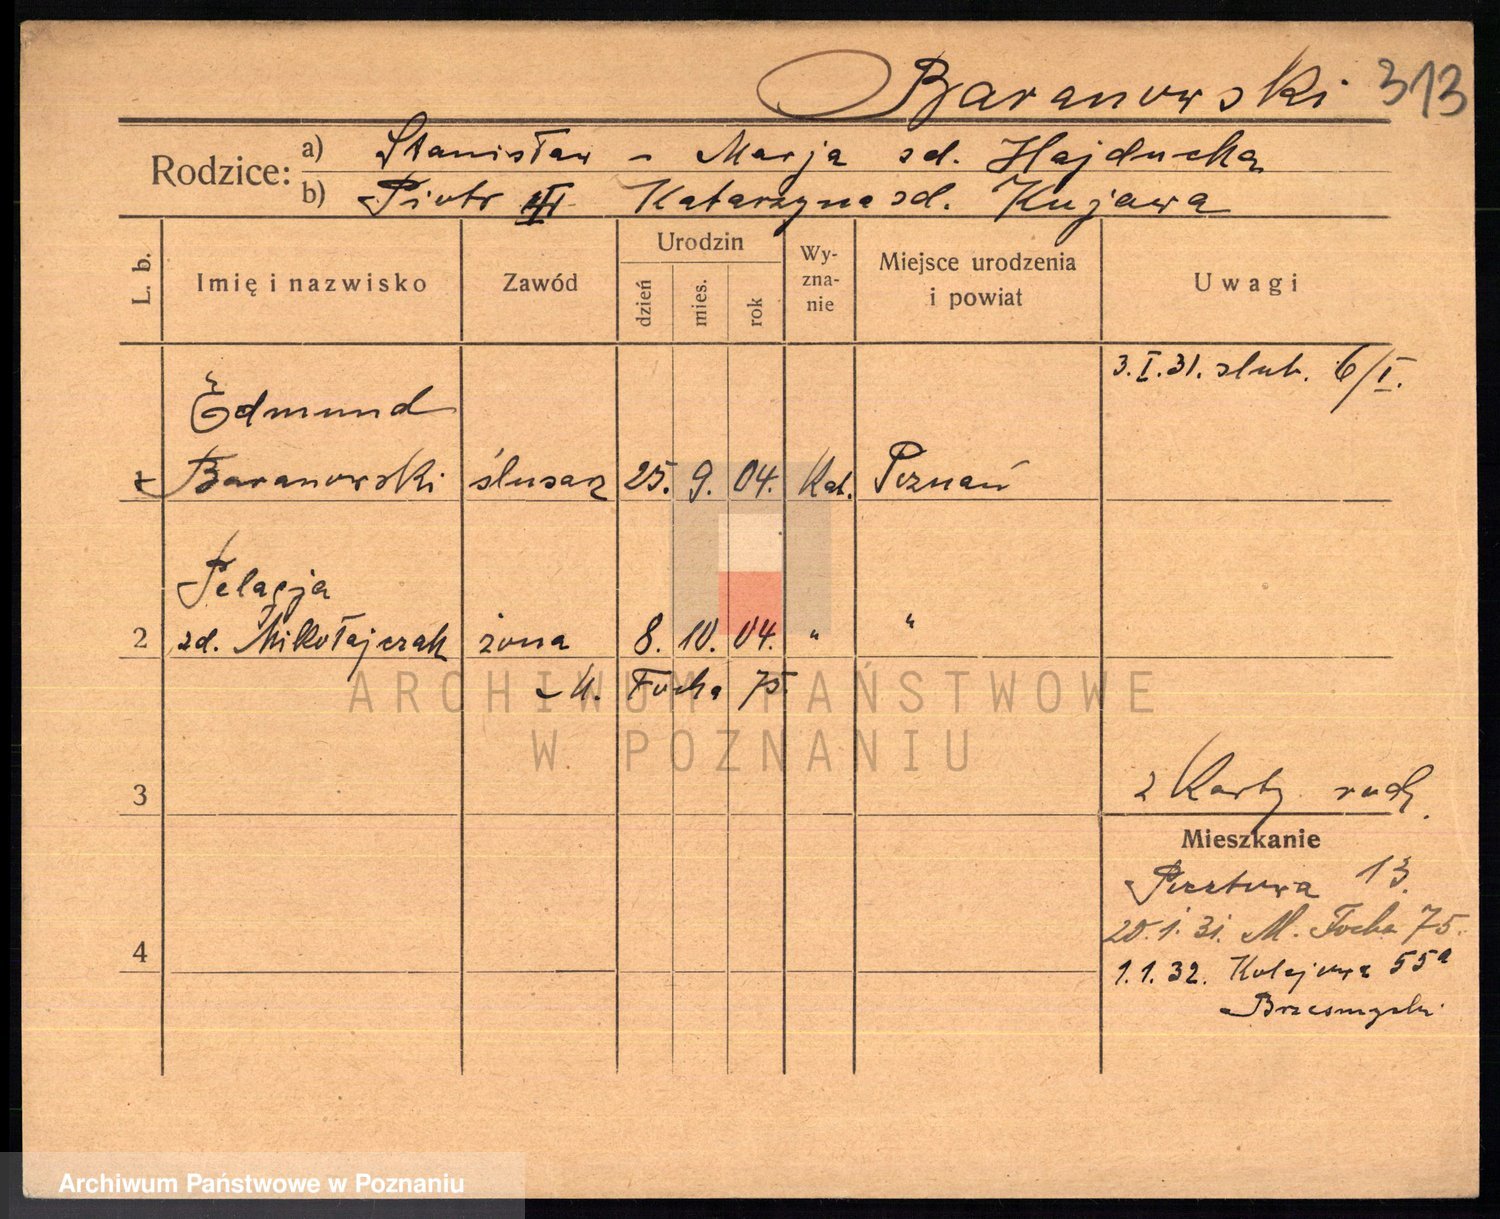 Baranowski 313
Rodzice: a) Stanisław - Marja zd. Hajducka
b) Piotr Katarzyna zd. Kujawa
L. b. Imię i nazwisko Zawód Urodzin dzień mies. rok Wy-zna-nie Miejsce urodzenia i powiat Uwagi
3.I.31. slub. 6/I.
Edmund
1 Baranowski ślusarz 25. 9. 04. Kat. Poznań
Pelagja
2 zd. Mikołajczak żona 8. 10. 04. " "
M. Focha 75.
3 2 Karty rodz.
Mieszkanie
Pocztowa 13.
20.1.31. M. Focha 75.
4
1.1.32. Kolejowa 55a
ARCHIWUM PAŃSTWOWE
W POZNANIU
Archiwum Państwowe w Poznaniu